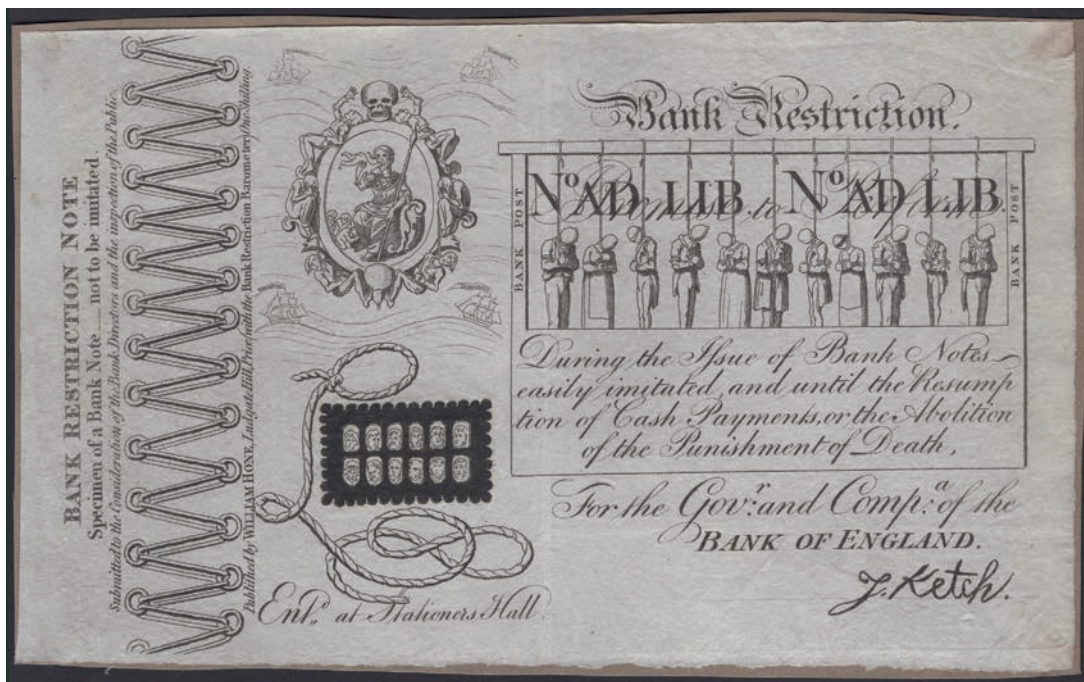 BANK RESTRICTION NOTE
Specimen of a Bank Note — not to be imitated.
Submitted to the Consideration of the Bank Directors and the inspection of the Public.
Published by WILLIAM HONE, Ludgate Hill, Price (with the Bank Restriction Barometer) One Shilling.
Bank Restriction.
BANK POST
No. AD. LIB. No. AD LIB.
Promise to Perform
BANK POST
During the Issue of Bank Notes
easily imitated, and until the Resump
tion of Cash Payments, or the Abolition
of the Punishment of Death,
For the Govr. and Compa. of the
BANK OF ENGLAND.
J. Ketch.
Entd. at Stationers Hall